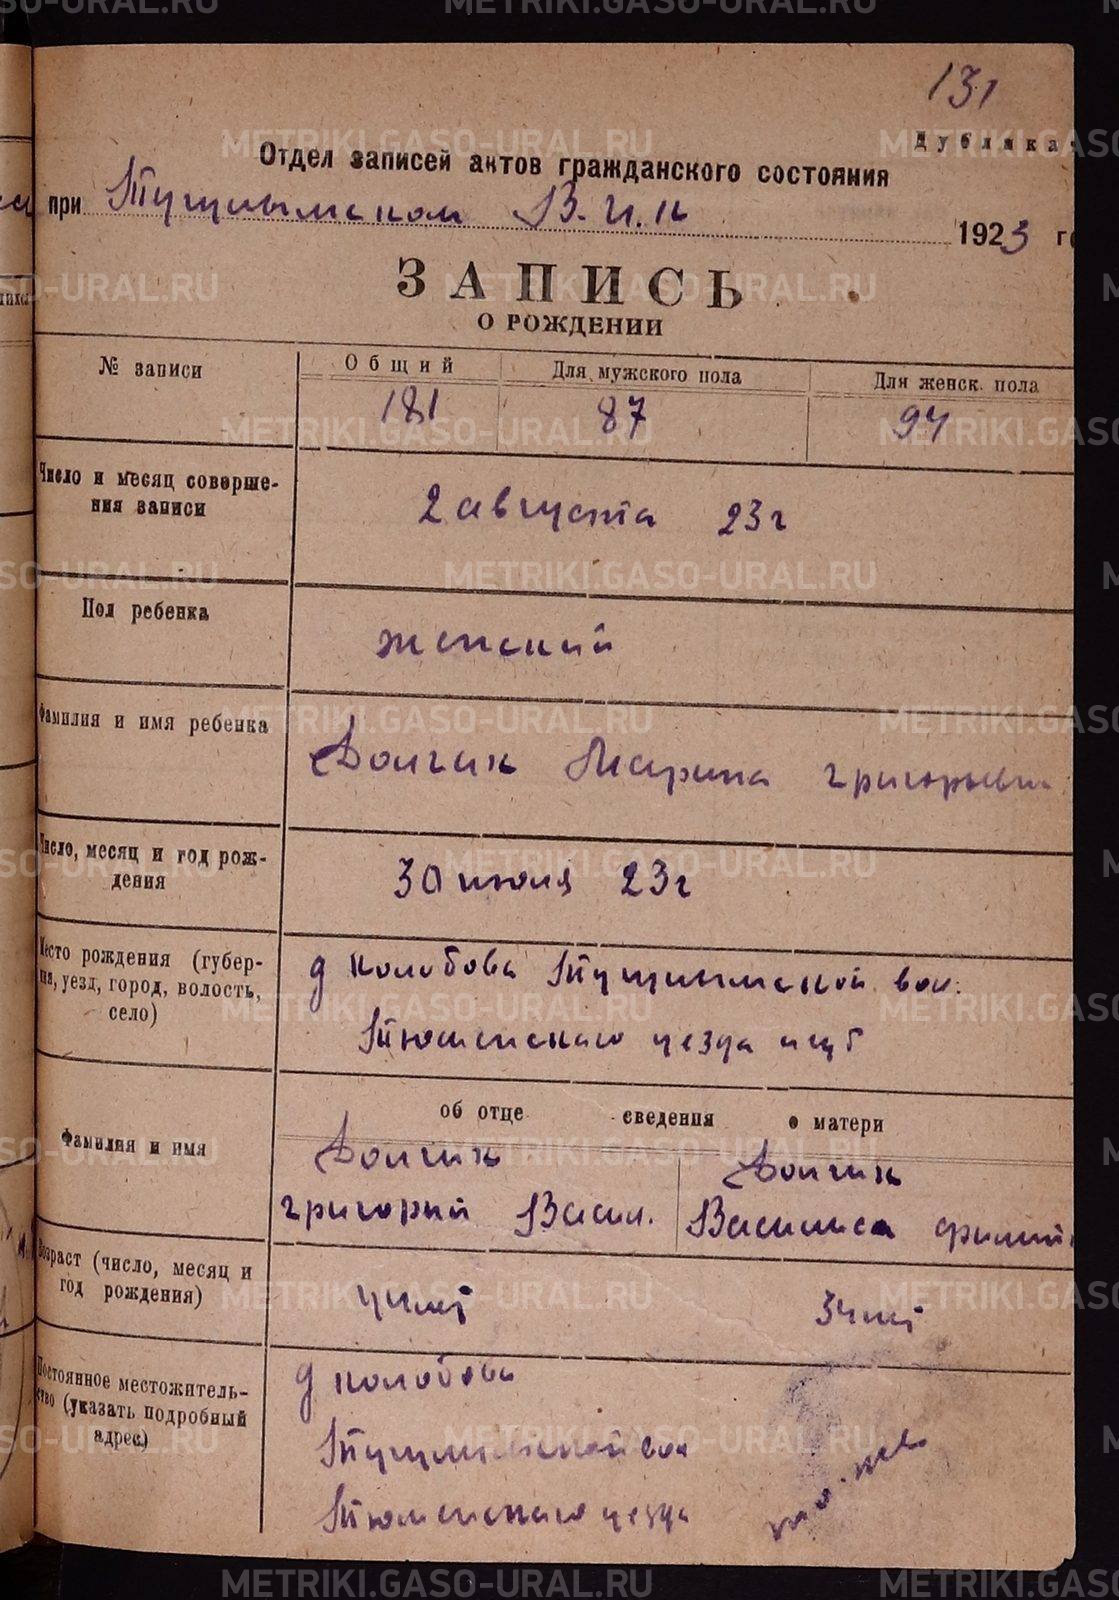 131
Дубликат
Отдел записей актов гражданского состояния
при Тугулымском В.И.К 1923 го
ЗАПИСЬ
О РОЖДЕНИИ
№ записи
Общий
Для мужского пола
Для женск. пола
181
87
94
Число и месяц соверше-
ния записи
2 августа 23 г
Пол ребенка
женский
Фамилия и имя ребенка
Долгих Марина григорьевн
Число, месяц и год рож-
дения
30 июля 23 г
Место рождения (губер-
ния, уезд, город, волость,
село)
д колобова Тугулымской вол.
Тюменскаго уезда
об отце сведения о матери
Фамилия и имя
Долгих
григорий Васил.
Долгих
Василиса
Возраст (число, месяц и
год рождения)
лет
34 лет
Постоянное местожитель-
ство (указать подробный
адрес)
д колобова
Тугулымской вол
Тюменскаго уезда
METRIKI.GASO-URAL.RU